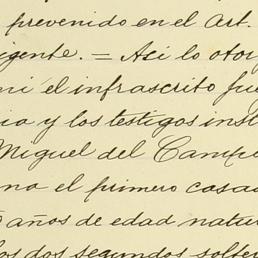 prevenido en el Art.
igente. = Asi lo otor
mi el infrascrito fu
ia y los testigos inst
Miguel del Campo
no el primero casad
años de edad natur
los dos segundos solte